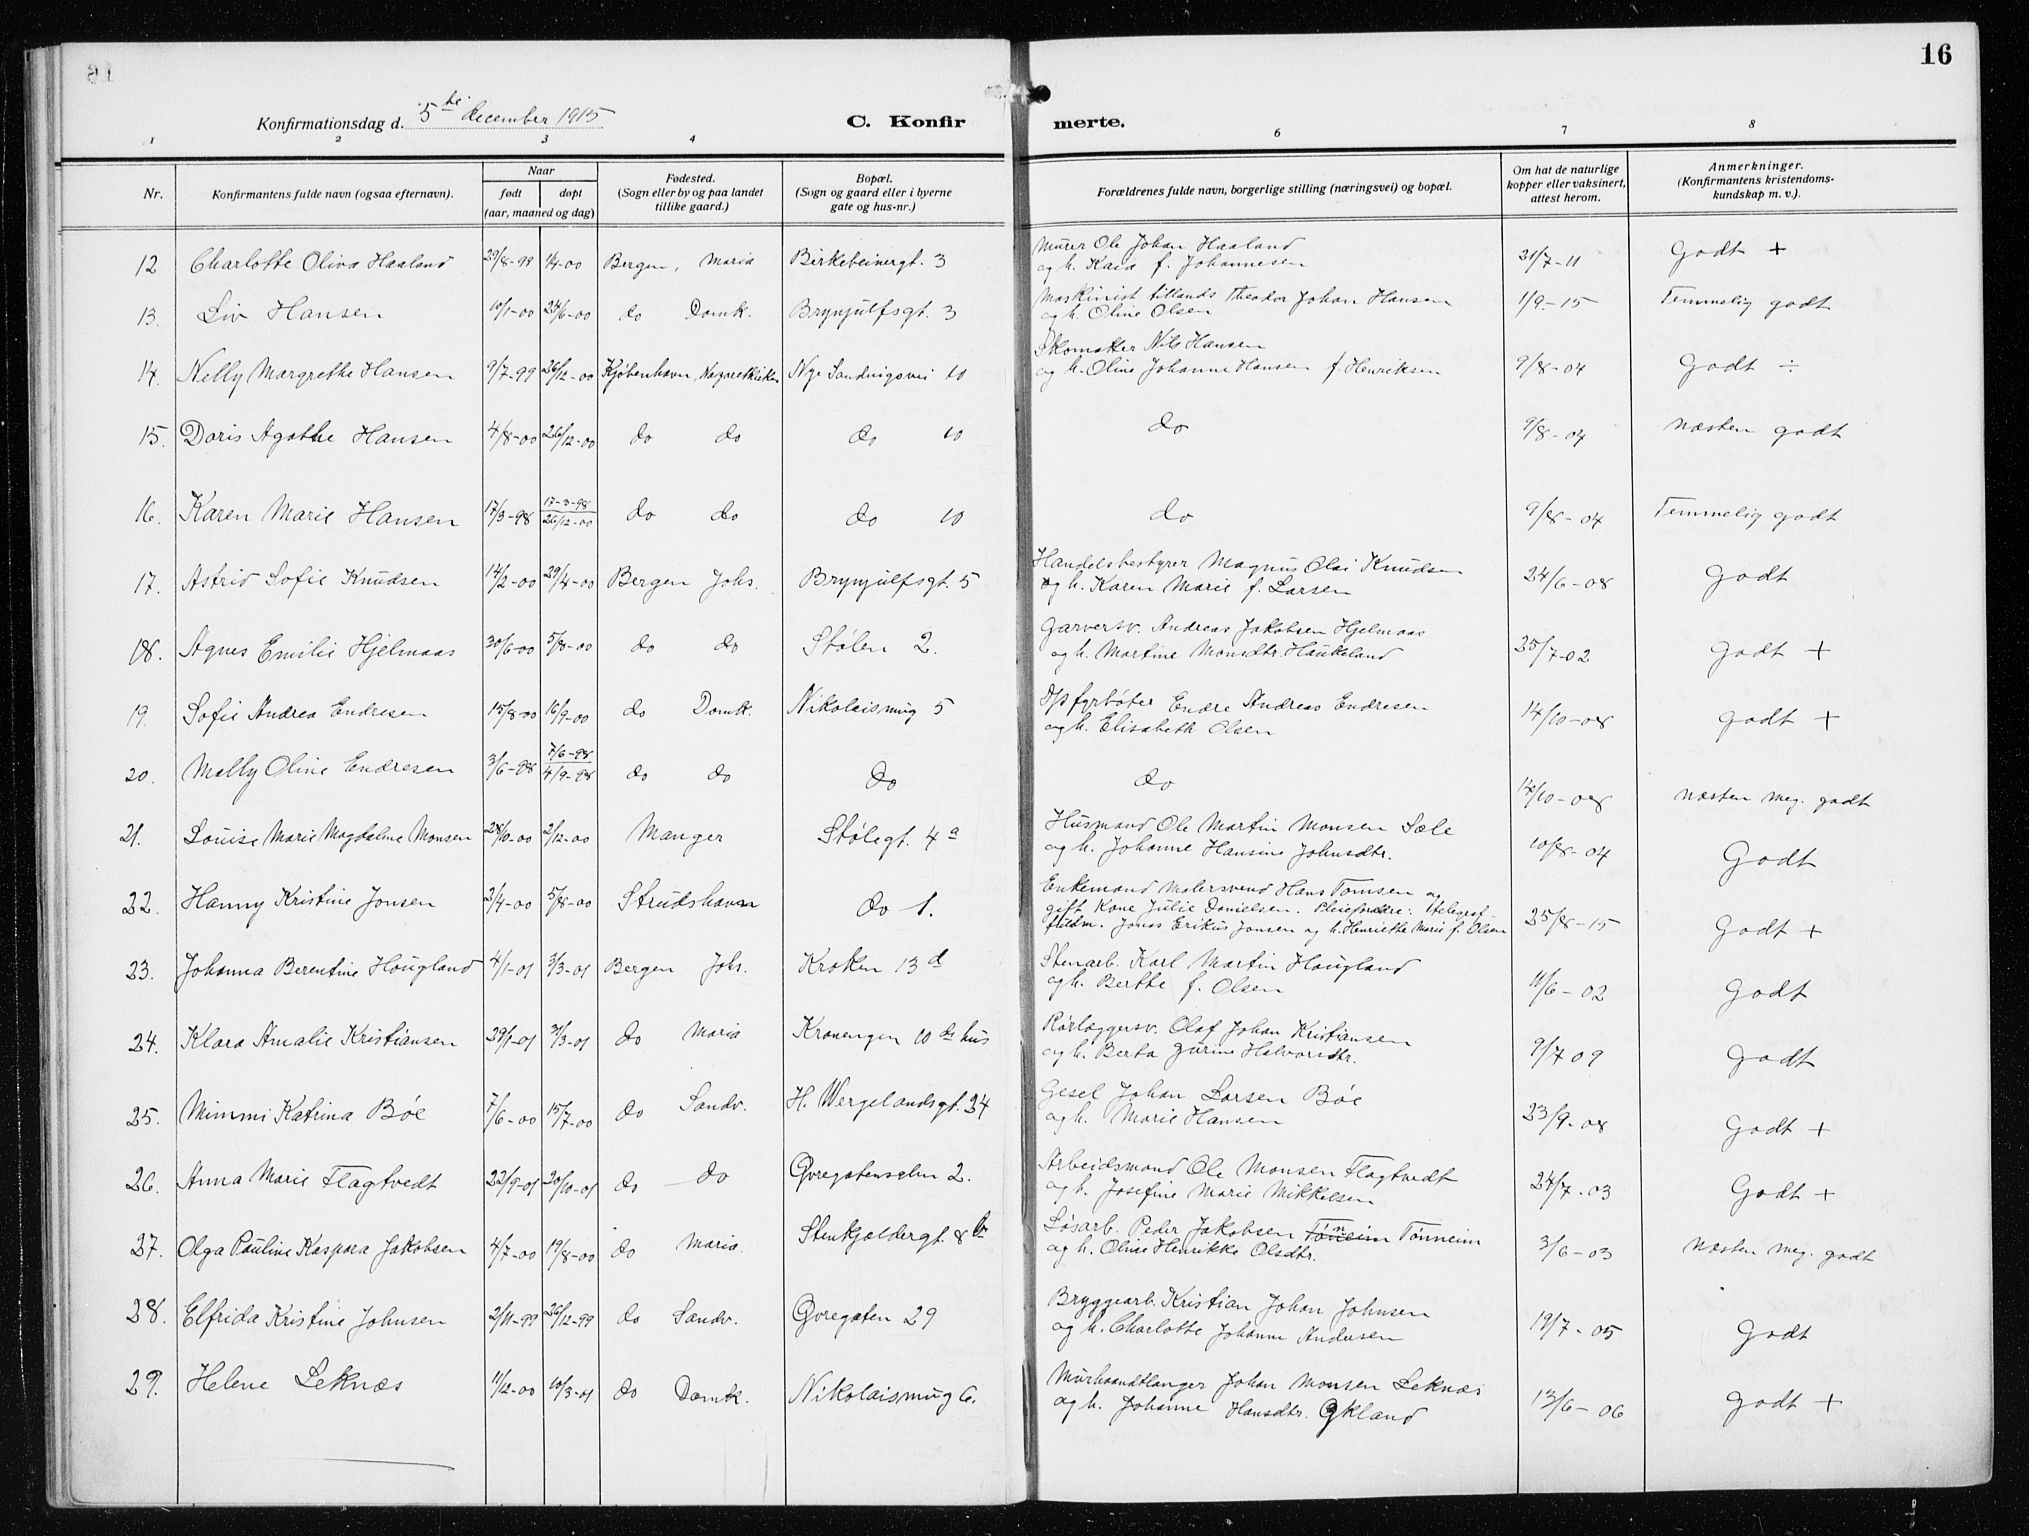 16
Konfirmationsdag d. 5te december 1915
C. Konfir merte.
1 2 3 4 6 7 8
Nr. Konfirmantens fulde navn (ogsaa efternavn). Naar født døpt (aar, maaned og dag) Fødested. (Sogn eller by og paa landet tillike gaard.) Bopæl. (Sogn og gaard eller i byerne gate og hus-nr.) Forældrenes fulde navn, borgerlige stilling (næringsvei) og bopæl. Om hat de naturlige kopper eller vaksinert, attest herom. Anmerkninger. (Konfirmantens kristendoms-kundskap m. v.).
12 Charlotte Oliva Haaland 29/8-99 1/4-00 Bergen, Maria Birkebeinergt. 3 Murer Ole Johan Haaland 21/7-11 Godt +
og h. Kaia f. Johannesen
13. Liv Hansen 10/1-00 24/6-00 do Domk. Brynjulfsgt. 3 Maskinist tillands Theodor Johan Hansen 1/9-15 Temmelig godt
og h. Oline Olsen
14. Nelly Margrethe Hansen 9/7-99 26/12-00 Kjøbenhavn, Nazarethkirken Nye Sandvigsvei 10 Skomaker Nils Hansen 9/8-04 Godt ÷
og h. Oline Johanne Hansen f. Henriksen
15. Doris Agathe Hansen 4/8-00 26/12-00 do do do 10 do 9/8-04 Næsten godt
16. Karen Marie Hansen 17/3-98 17-3-98 26/12-00 do do do 10 do 9/8-04 Temmelig godt
17. Astrid Sofie Knudsen 14/2-00 29/4-00 Bergen Johs. Brynjulfsgt. 5 Handelsbestyrer Magnus Olai Knudsen 24/6-08 Godt
og h. Karen Marie f. Larsen
18. Agnes Emilie Hjelmaas 30/6-00 5/8-00 do do Stølen 2. Garversv. Andreas Jakobsen Hjelmaas 25/7-02 Godt +
og h. Martine Monsdtr. Haukeland
19. Sofie Andrea Endresen 15/8-00 16/9-00 do Domk. Nikolaismug 5 D/s fyrbøter Endre Andreas Endresen 14/10-08 godt +
og h. Elisabeth Olsen
20. Molly Oline Endresen 3/6-98 7/6-98 4/9-98 do do do do 14/10-08 Næsten meg. godt
21. Louise Marie Magdalene Monsen 28/10-00 2/12-00 Manger Stølegt. 4a Husmand Ole Martin Monsen Sæle 10/8-04 Godt
og h. Johanne Hansine Johnsdtr.
22. Hanny Kristine Jonsen 2/4-00 5/8-00 Strudshavn do 1. Enkemand Malersvend Hans Tomsen og 25/8-15 Godt +
gift Kone Julie Danielsen. Pleieforældre: Telegraf-
fuldm. Jonas Erikus Jonsen og h. Henriette Marie f. Olsen
23. Johanna Berentine Hougland 4/1-01 3/3-01 Bergen Johs. Kroken 13d Stenarb. Karl Martin Hougland 11/6-02 Godt
og h. Berthe f. Olsen
24. Klara Amalie Kristiansen 29/1-01 31/3-01 do Maria Kronengen 10de hus Rørlæggersv. Olaf Johan Kristiansen 9/7 09 Godt
og h. Berta Gurine Halvorsdtr.
25. Mimmi Katrina Bøe 7/6-00 15/7-00 do Sandv. H. Wergelandsgt. 24 Gesel Johan Larsen Bøe 23/9-08 Godt +
og h. Marie Hansen
26. Anna Marie Flagtvedt 22/9-01 20/10-01 do do Øvregatensalm 2. Arbeidsmand Ole Monsen Flagtvedt 24/7-03 Godt +
og h. Josefine Marie Mikkelsen
27. Olga Pauline Kaspara Jakobsen 4/7-00 19/8-00 do Maria. Stenkjældergt. 8b Løsarb. Peder Jakobsen Tønneim Tønneim 3/6-03 Næsten meg. godt
og h. Oline Henrikke Olsdtr.
28. Elfrida Kristine Johnsen 2/11-99 26/12-99 do Sandv. Øvregaten 29 Bryggearb. Kristian Johan Johnsen 19/7-05 Godt
og h. Charlotte Johanne Andersen
29. Helene Leknæs 11/12-00 10/3-01 do Domk. Nikolaismug 6. Murhaandlanger Johan Monsen Leknæs 13/6-06 Godt +
og h. Johanne Hansdtr. Økland